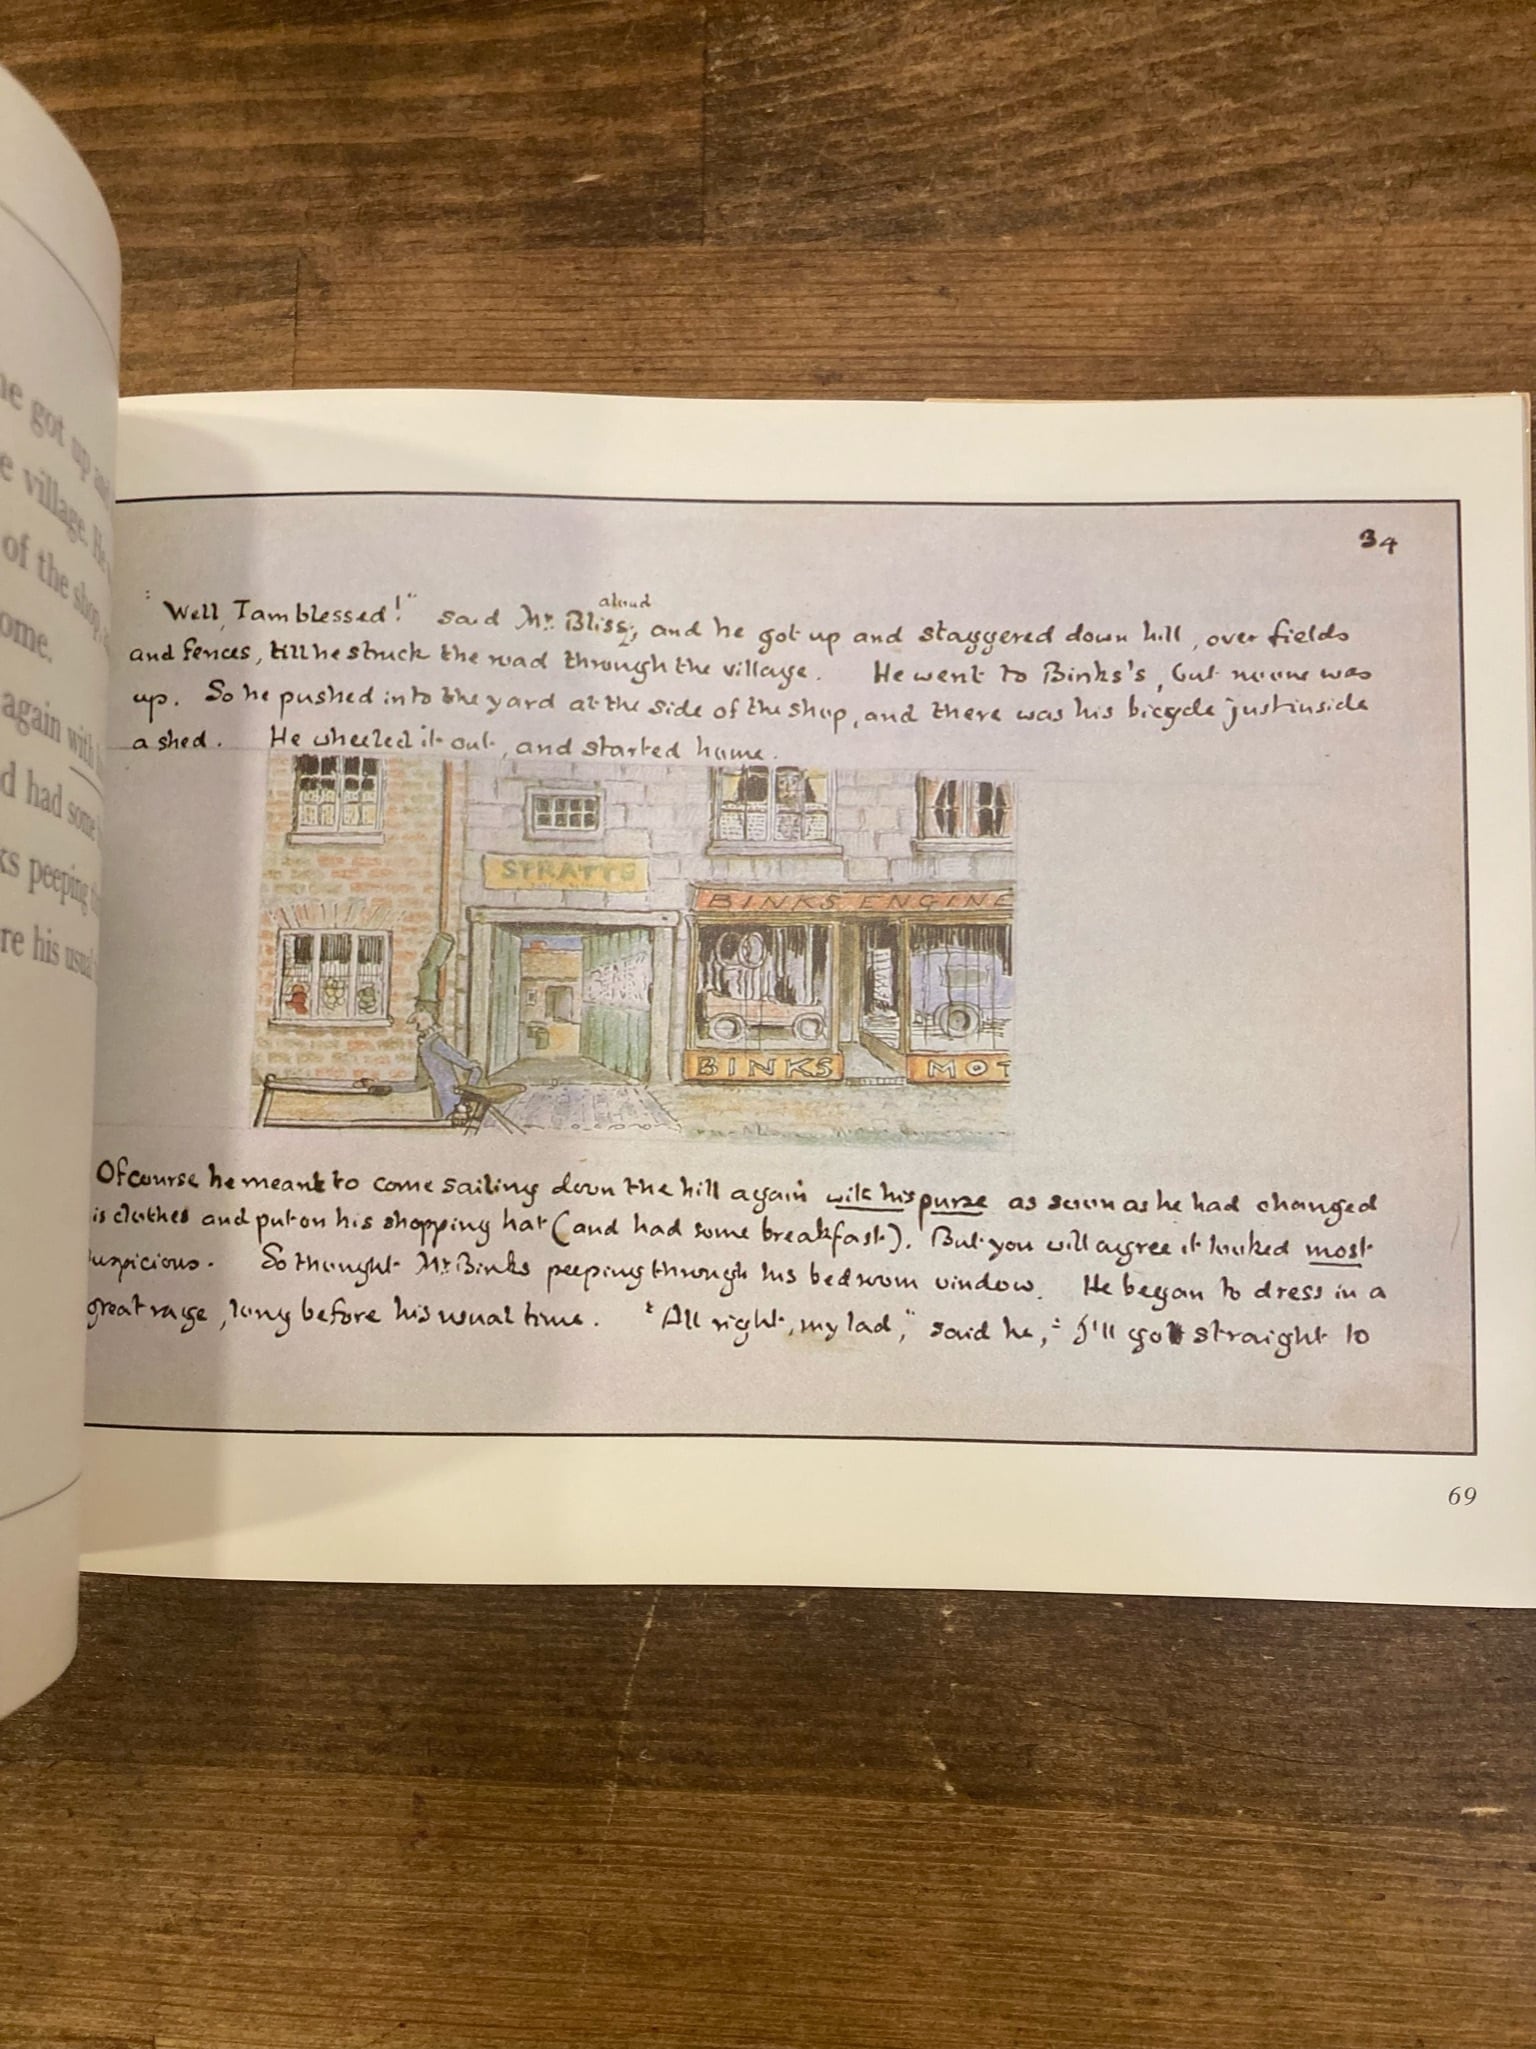 he got up and
e village. He
of the shop, a
ome.
again with h
d had some b
ks peeping th
re his usual
34
"Well, I am blessed!" said Mr. Bliss aloud, and he got up and staggered down hill, over fields
and fences, till he struck the road through the village. He went to Binks's, but no one was
up. So he pushed into the yard at the side of the shop, and there was his bicycle just inside
a shed. He wheeled it out, and started home.
STRATTS
BINKS ENGINE
BINKS
MOT
Of course he meant to come sailing down the hill again with his purse as soon as he had changed
is clothes and put on his shopping hat (and had some breakfast). But you will agree it looked most
suspicious. So thought Mr. Binks peeping through his bedroom window. He began to dress in a
great rage, long before his usual time. "All right, my lad," said he, "I'll go straight to
69